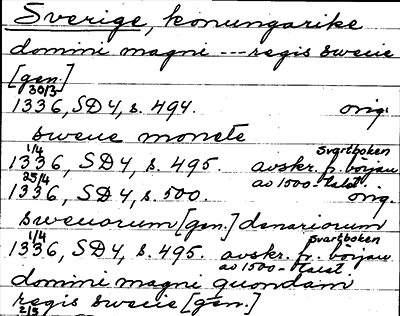 Sverige, konungarike
domini magni --- regis swecie
[gen.]
30/3
1336, SD4, s. 494. orig.
swecie monete
1/4 svartboken
1336, SD4, s. 495. avskr. fr. början
25/4 av 1500-talet.
1336, SD4, s. 500. orig.
sweuorum [gen.] denariorum
1/4 svartboken
1336, SD4, s. 495. avskr. fr. början
av 1500-talet.
domini magni quondam
regis swecie [gen.]
2/5